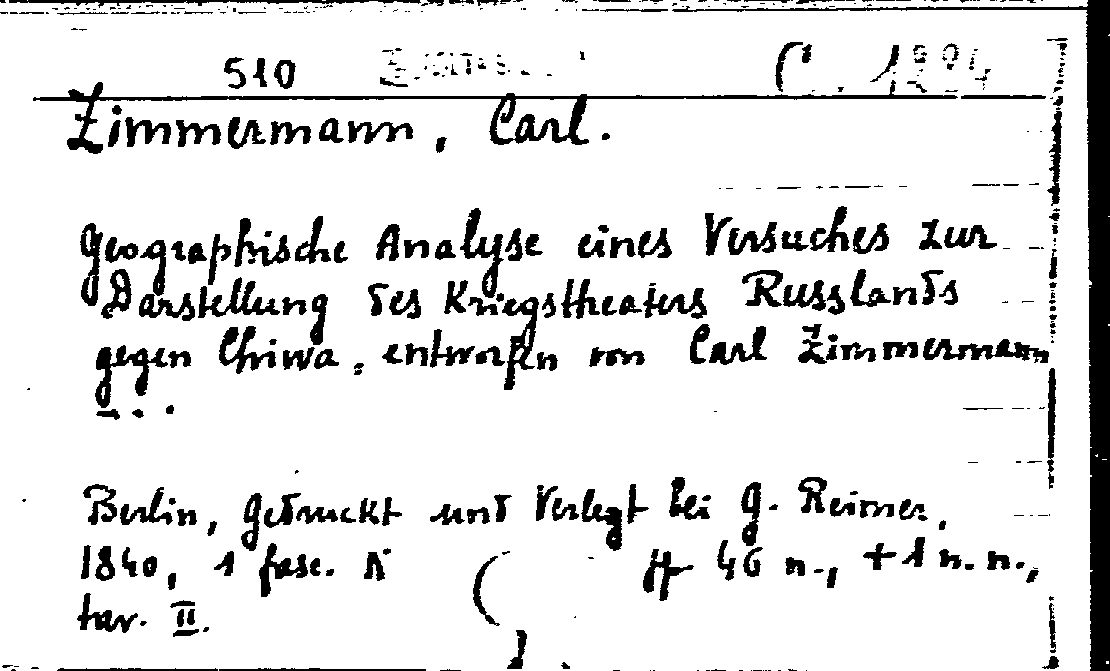 510 C. 1224
Zimmermann, Carl.
Geographische Analyse eines Versuches zur
Darstellung des Kriegstheaters Russlands
gegen Chiwa, entworfen von Carl Zimmermann
...
Berlin, Gedruckt und Verlegt bei G. Reimer,
1840, 1 fasc. ( pp 46 n., + 1 n. n.,
tav. II.